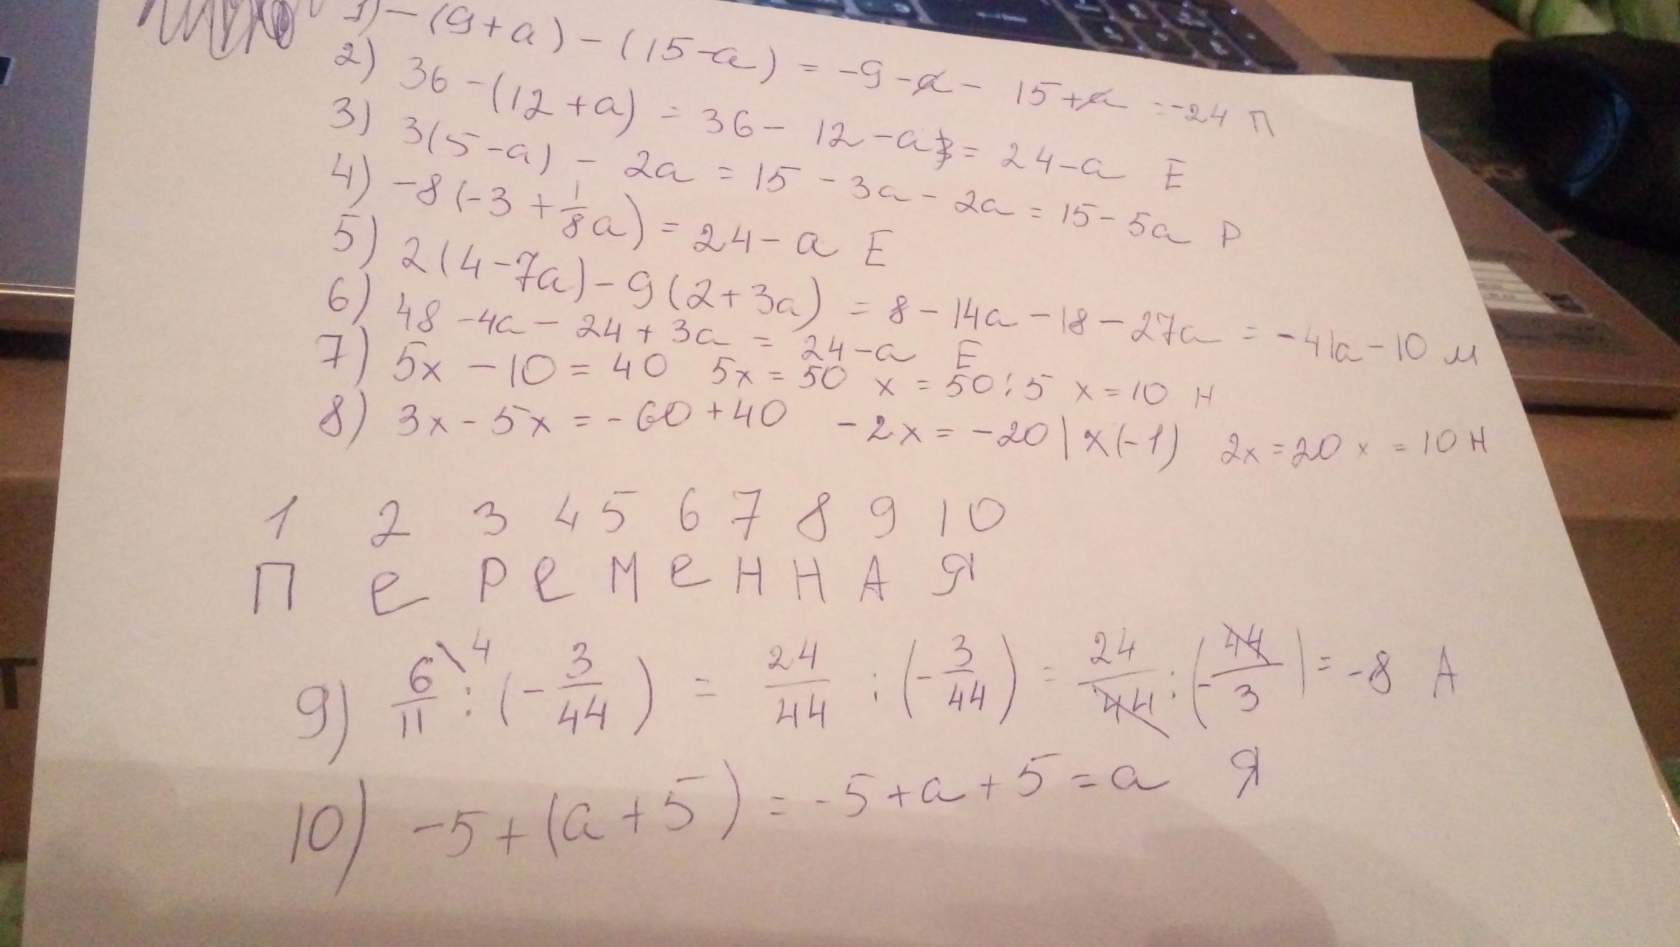 1) -(9+a) - (15-a) = -9-a- 15+a = -24 П
2) 36 -(12+a) = 36- 12-a = 24-a Е
3) 3(5-a) - 2a = 15 - 3a - 2a = 15-5a Р
4) -8(-3 + 1/8a) = 24-a Е
5) 2(4-7a)-9(2+3a) = 8-14a-18-27a = -41a-10 м
6) 48-4a-24+3a = 24-a Е
7) 5x -10=40 5x=50 x=50:5 x=10 Н
8) 3x-5x=-60+40 -2x=-20|x(-1) 2x=20 x=10 Н
1 2 3 4 5 6 7 8 9 10
П е Р е М е Н Н А Я
9) 6/11\4 : (-3/44) = 24/44 : (-3/44) = 24/44 : (-44/3) = -8 А
10) -5+(a+5) = -5+a+5=a Я